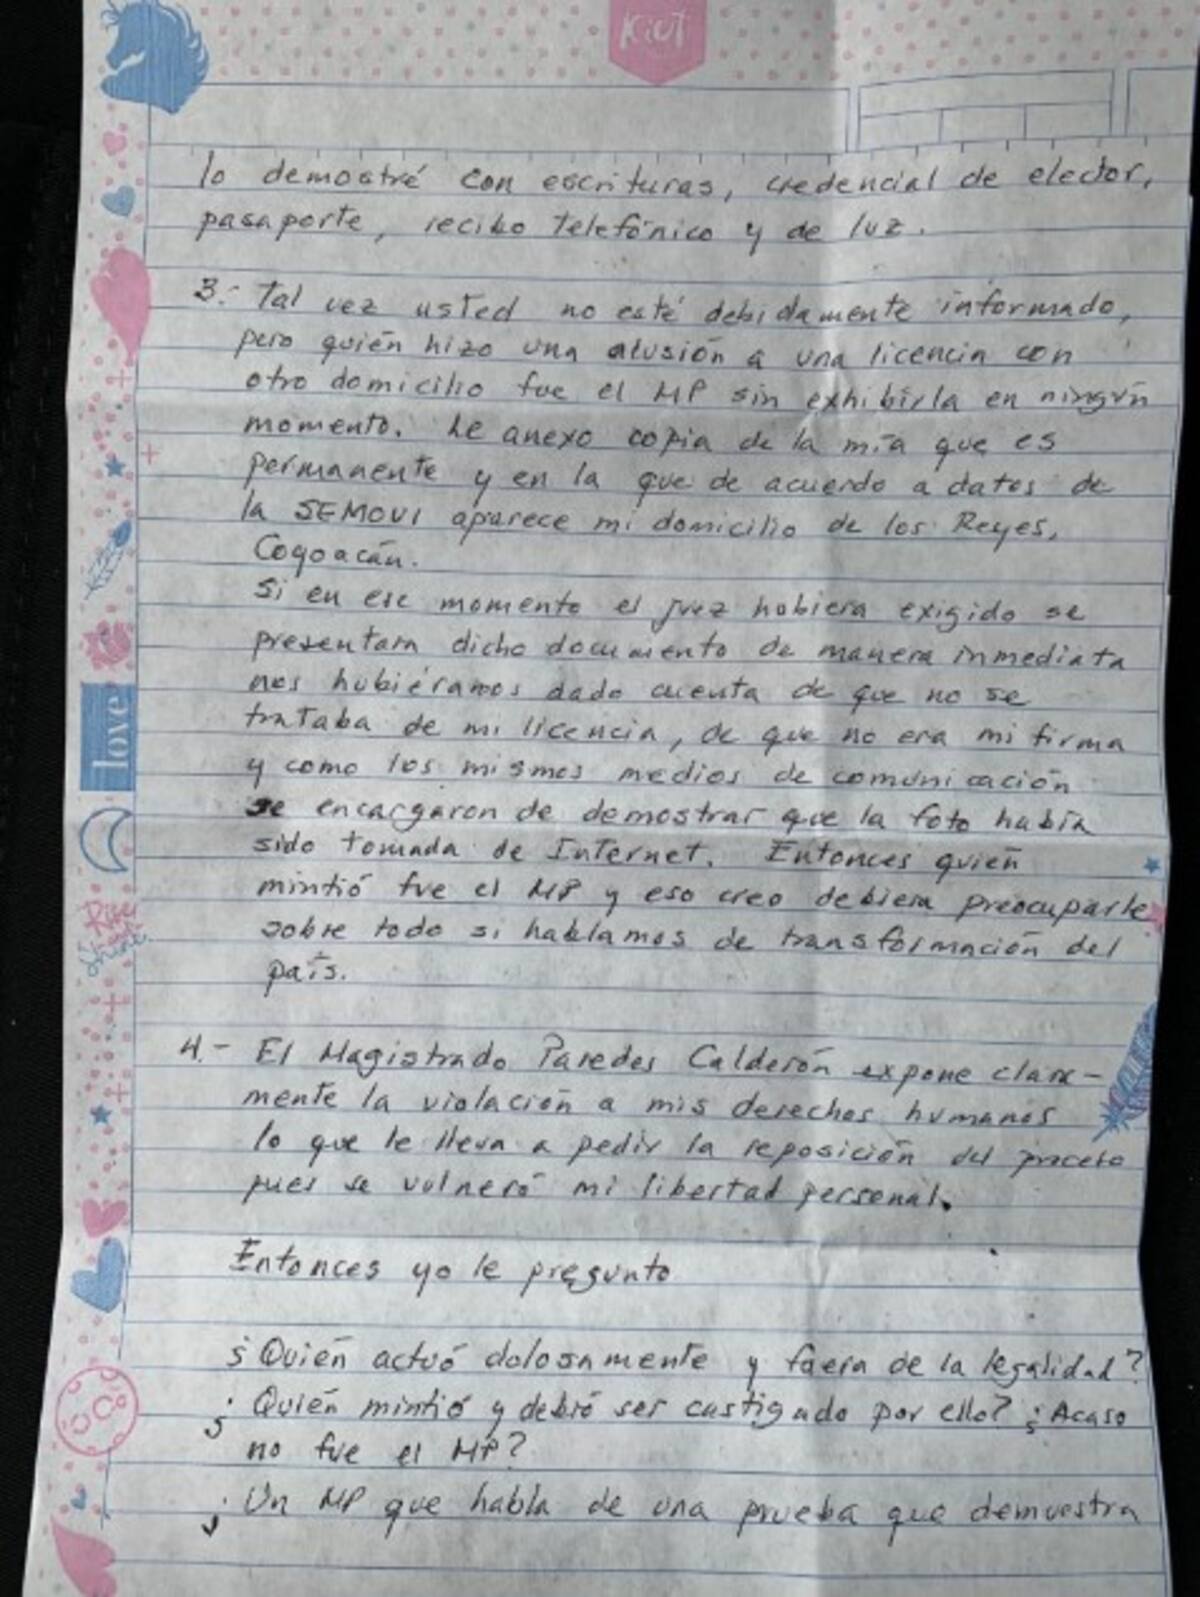 Kiut
lo demostré con escrituras, credencial de elector,
pasaporte, recibo telefónico y de luz.
3.- Tal vez usted no esté debidamente informado,
pero quién hizo una alusión a una licencia con
otro domicilio fue el MP sin exhibirla en ningún
momento. Le anexo copia de la mía que es
permanente y en la que de acuerdo a datos de
la SEMOVI aparece mi domicilio de los Reyes,
Coyoacán.
Si en ese momento el juez hubiera exigido se
presentara dicho documento de manera inmediata
nos hubiéramos dado cuenta de que no se
trataba de mi licencia, de que no era mi firma
y como los mismos medios de comunicación
se encargaron de demostrar que la foto había
sido tomada de Internet. Entonces quién
mintió fue el MP y eso creo debiera preocuparle
sobre todo si hablamos de transformación del
país.
4.- El Magistrado Paredes Calderón expone clara-
mente la violación a mis derechos humanos
lo que le lleva a pedir la reposición del proceso
pues se vulneró mi libertad personal.
Entonces yo le pregunto
¿Quién actuó dolosamente y fuera de la legalidad?
¿Quién mintió y debió ser castigado por ello? ¿Acaso
no fue el MP?
¿Un MP que habla de una prueba que demuestra
love
Rise
and
Shine